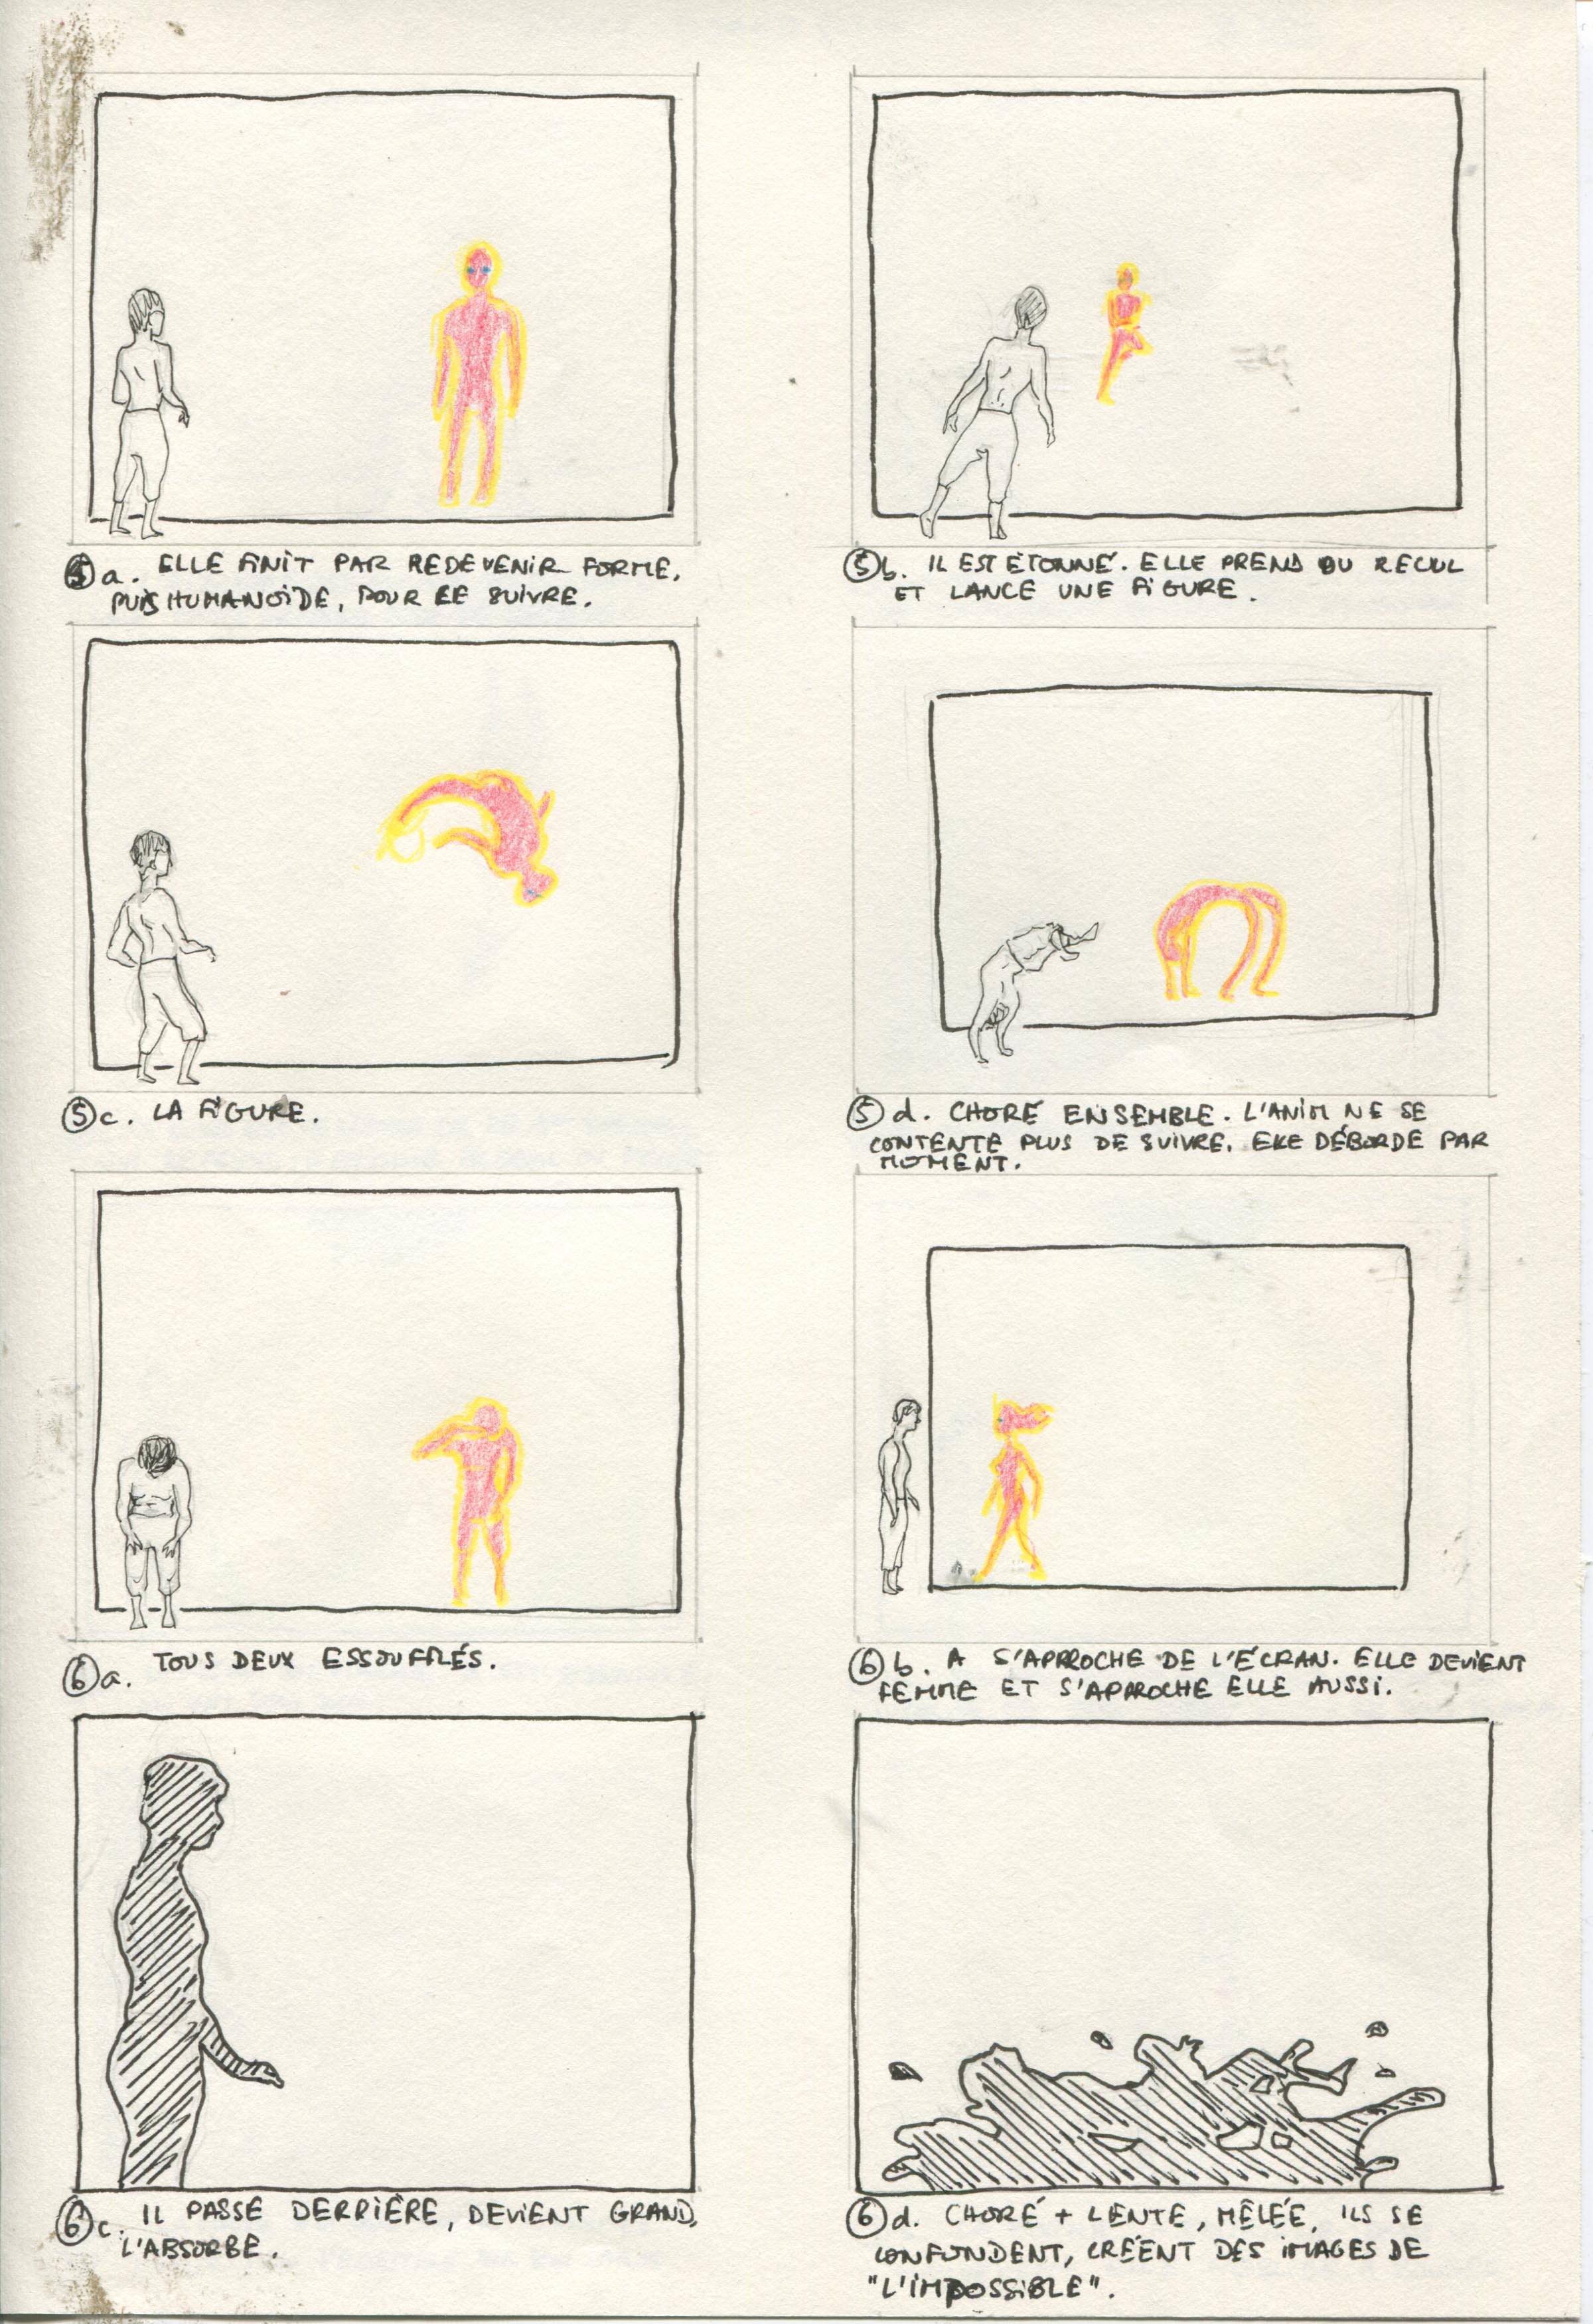 ⑤a. ELLE FINIT PAR REDEVENIR FORME,
PUIS HUMANOÏDE, POUR LE SUIVRE.
⑤b. IL EST ÉTONNÉ. ELLE PREND DU RECUL
ET LANCE UNE FIGURE.
⑤c. LA FIGURE.
⑤d. CHORÉ ENSEMBLE. L'ANIM NE SE
CONTENTE PLUS DE SUIVRE. ELLE DÉBORDE PAR
MOMENT.
⑥a. TOUS DEUX ESSOUFFLÉS.
⑥b. A S'APPROCHE DE L'ÉCRAN. ELLE DEVIENT
FEMME ET S'APPROCHE ELLE AUSSI.
⑥c. IL PASSE DERRIÈRE, DEVIENT GRAND,
L'ABSORBE.
⑥d. CHORÉ + LENTE, MÊLÉE, ILS SE
CONFONDENT, CRÉENT DES IMAGES DE
"L'IMPOSSIBLE".